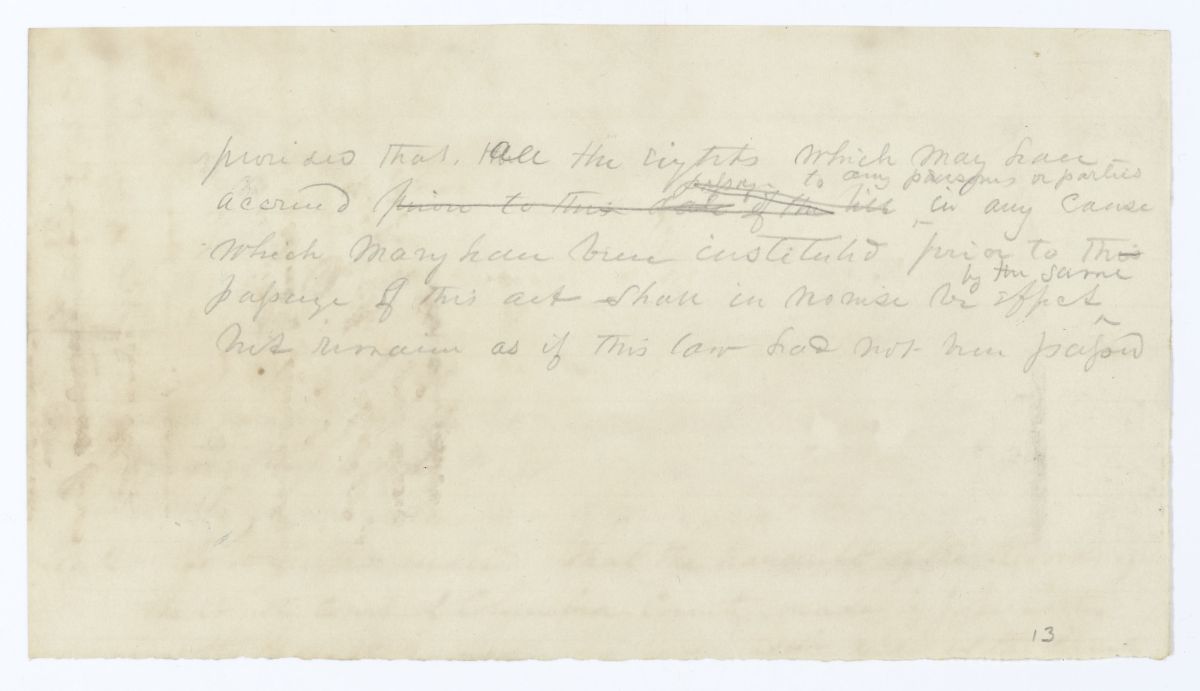 provided that. all the rights which may have
passage to any persons or parties
accrued prior to this date of the bill in any cause
which may have been instituted prior to this
by the same
passage of this act shall in nowise be effect
but remain as if this law had not been passed
13